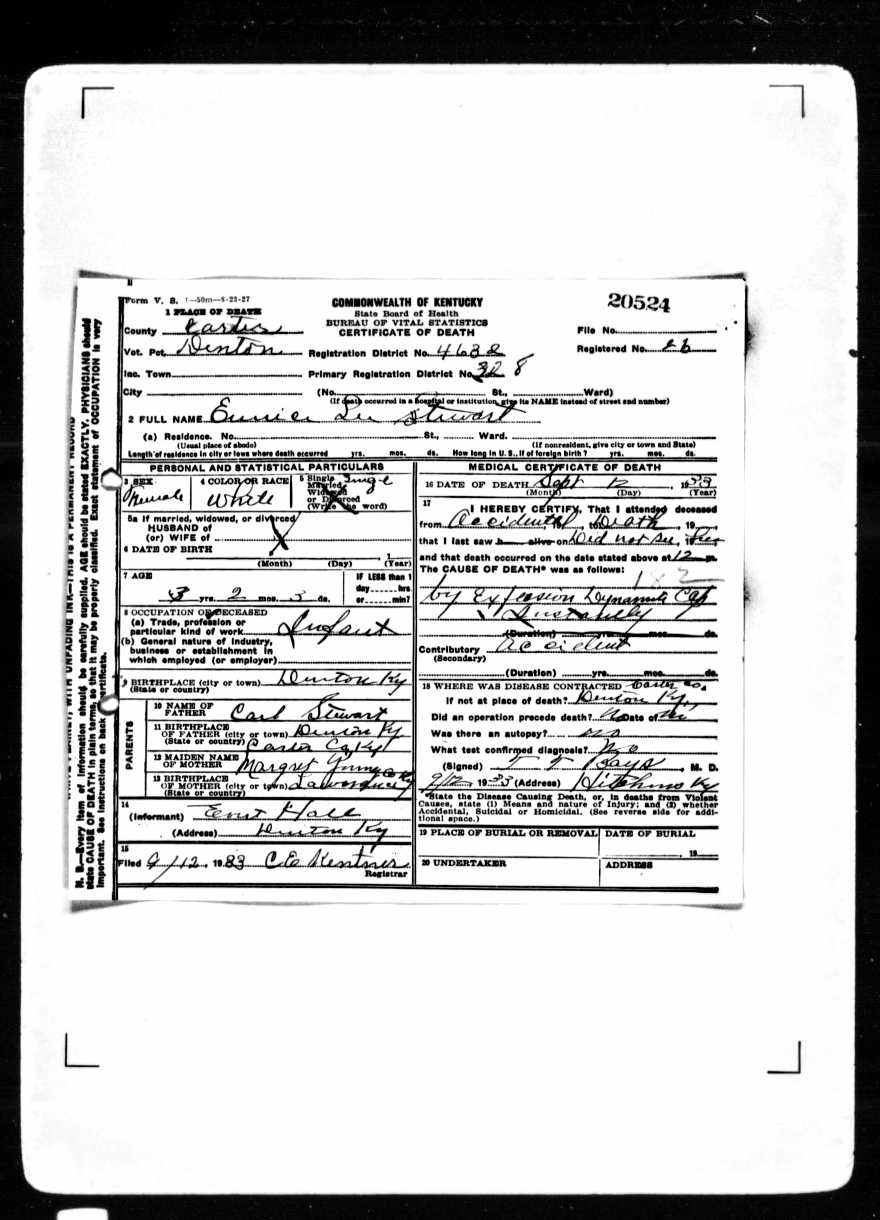 Form V. S. 1—50m—8-23-27
COMMONWEALTH OF KENTUCKY
State Board of Health
BUREAU OF VITAL STATISTICS
CERTIFICATE OF DEATH
20524
1 PLACE OF DEATH
County Carter
File No.
Vot. Pct. Denton Registration District No. 4632
Registered No. 26
Inc. Town Primary Registration District No. 328
City (No. St., Ward)
(If death occurred in a hospital or institution, give its NAME instead of street and number)
2 FULL NAME Eunice Lee Stewart
(a) Residence. No. St., Ward.
(Usual place of abode) (If nonresident, give city or town and State)
Length of residence in city or town where death occurred yrs. mos. ds. How long in U. S., if of foreign birth? yrs. mos. ds.
PERSONAL AND STATISTICAL PARTICULARS
3 SEX Female
4 COLOR OR RACE White
5 Single Single
Married,
Widowed
or Divorced
(Write the word)
5a If married, widowed, or divorced
HUSBAND of
(or) WIFE of
6 DATE OF BIRTH , 1
(Month) (Day) (Year)
7 AGE 3 yrs. 2 mos. 3 ds.
IF LESS than 1
day hrs
or min?
8 OCCUPATION OF DECEASED
(a) Trade, profession or
particular kind of work Infant
(b) General nature of industry,
business or establishment in
which employed (or employer)
9 BIRTHPLACE (city or town) Denton Ky
(State or country)
PARENTS
10 NAME OF
FATHER Carl Stewart
11 BIRTHPLACE
OF FATHER (city or town) Denton Ky
(State or country) Carter Co Ky
12 MAIDEN NAME
OF MOTHER Margret Young
13 BIRTHPLACE
OF MOTHER (city or town) Lawrence Co Ky
(State or country)
14
(Informant) Hall
(Address) Denton Ky
15
Filed 9/12, 1933 C E
Registrar
MEDICAL CERTIFICATE OF DEATH
16 DATE OF DEATH Sept 12, 1933
(Month) (Day) (Year)
17
I HEREBY CERTIFY, That I attended deceased
from Accidental, 19 , to Death, 19
that I last saw h alive on Did not see, 19
and that death occurred on the date stated above at 12 m.
The CAUSE OF DEATH* was as follows:
182
by Explosion Dynamite Cap
Instantly
(Duration) yrs. mos. ds.
Contributory Accident
(Secondary)
(Duration) yrs. mos. ds.
18 WHERE WAS DISEASE CONTRACTED Carter Co.
If not at place of death? Denton Ky
Did an operation precede death? No Date of
Was there an autopsy? no
What test confirmed diagnosis? No
(Signed) Bays, M. D.
9/12, 1933 (Address) Hitchins Ky
*State the Disease Causing Death, or, in deaths from Violent
Causes, state (1) Means and nature of Injury; and (2) whether
Accidental, Suicidal or Homicidal. (See reverse side for addi-
tional space.)
19 PLACE OF BURIAL OR REMOVAL DATE OF BURIAL
, 19
20 UNDERTAKER ADDRESS
N. B.—Every item of information should be carefully supplied. AGE should be stated EXACTLY. PHYSICIANS should
state CAUSE OF DEATH in plain terms, so that it may be properly classified. Exact statement of OCCUPATION is very
important. See instructions on back of certificate.